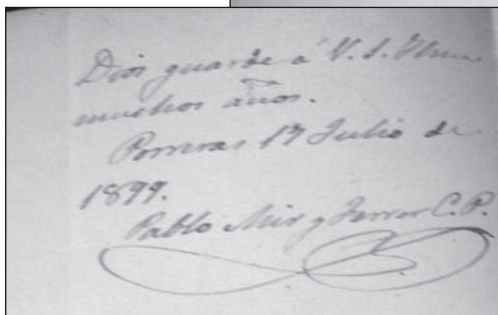 Dios guarde á V. S. Ilma
muchos años.
Porreras 17 Julio de
1899.
Pablo Mir y Ferrer C. P.